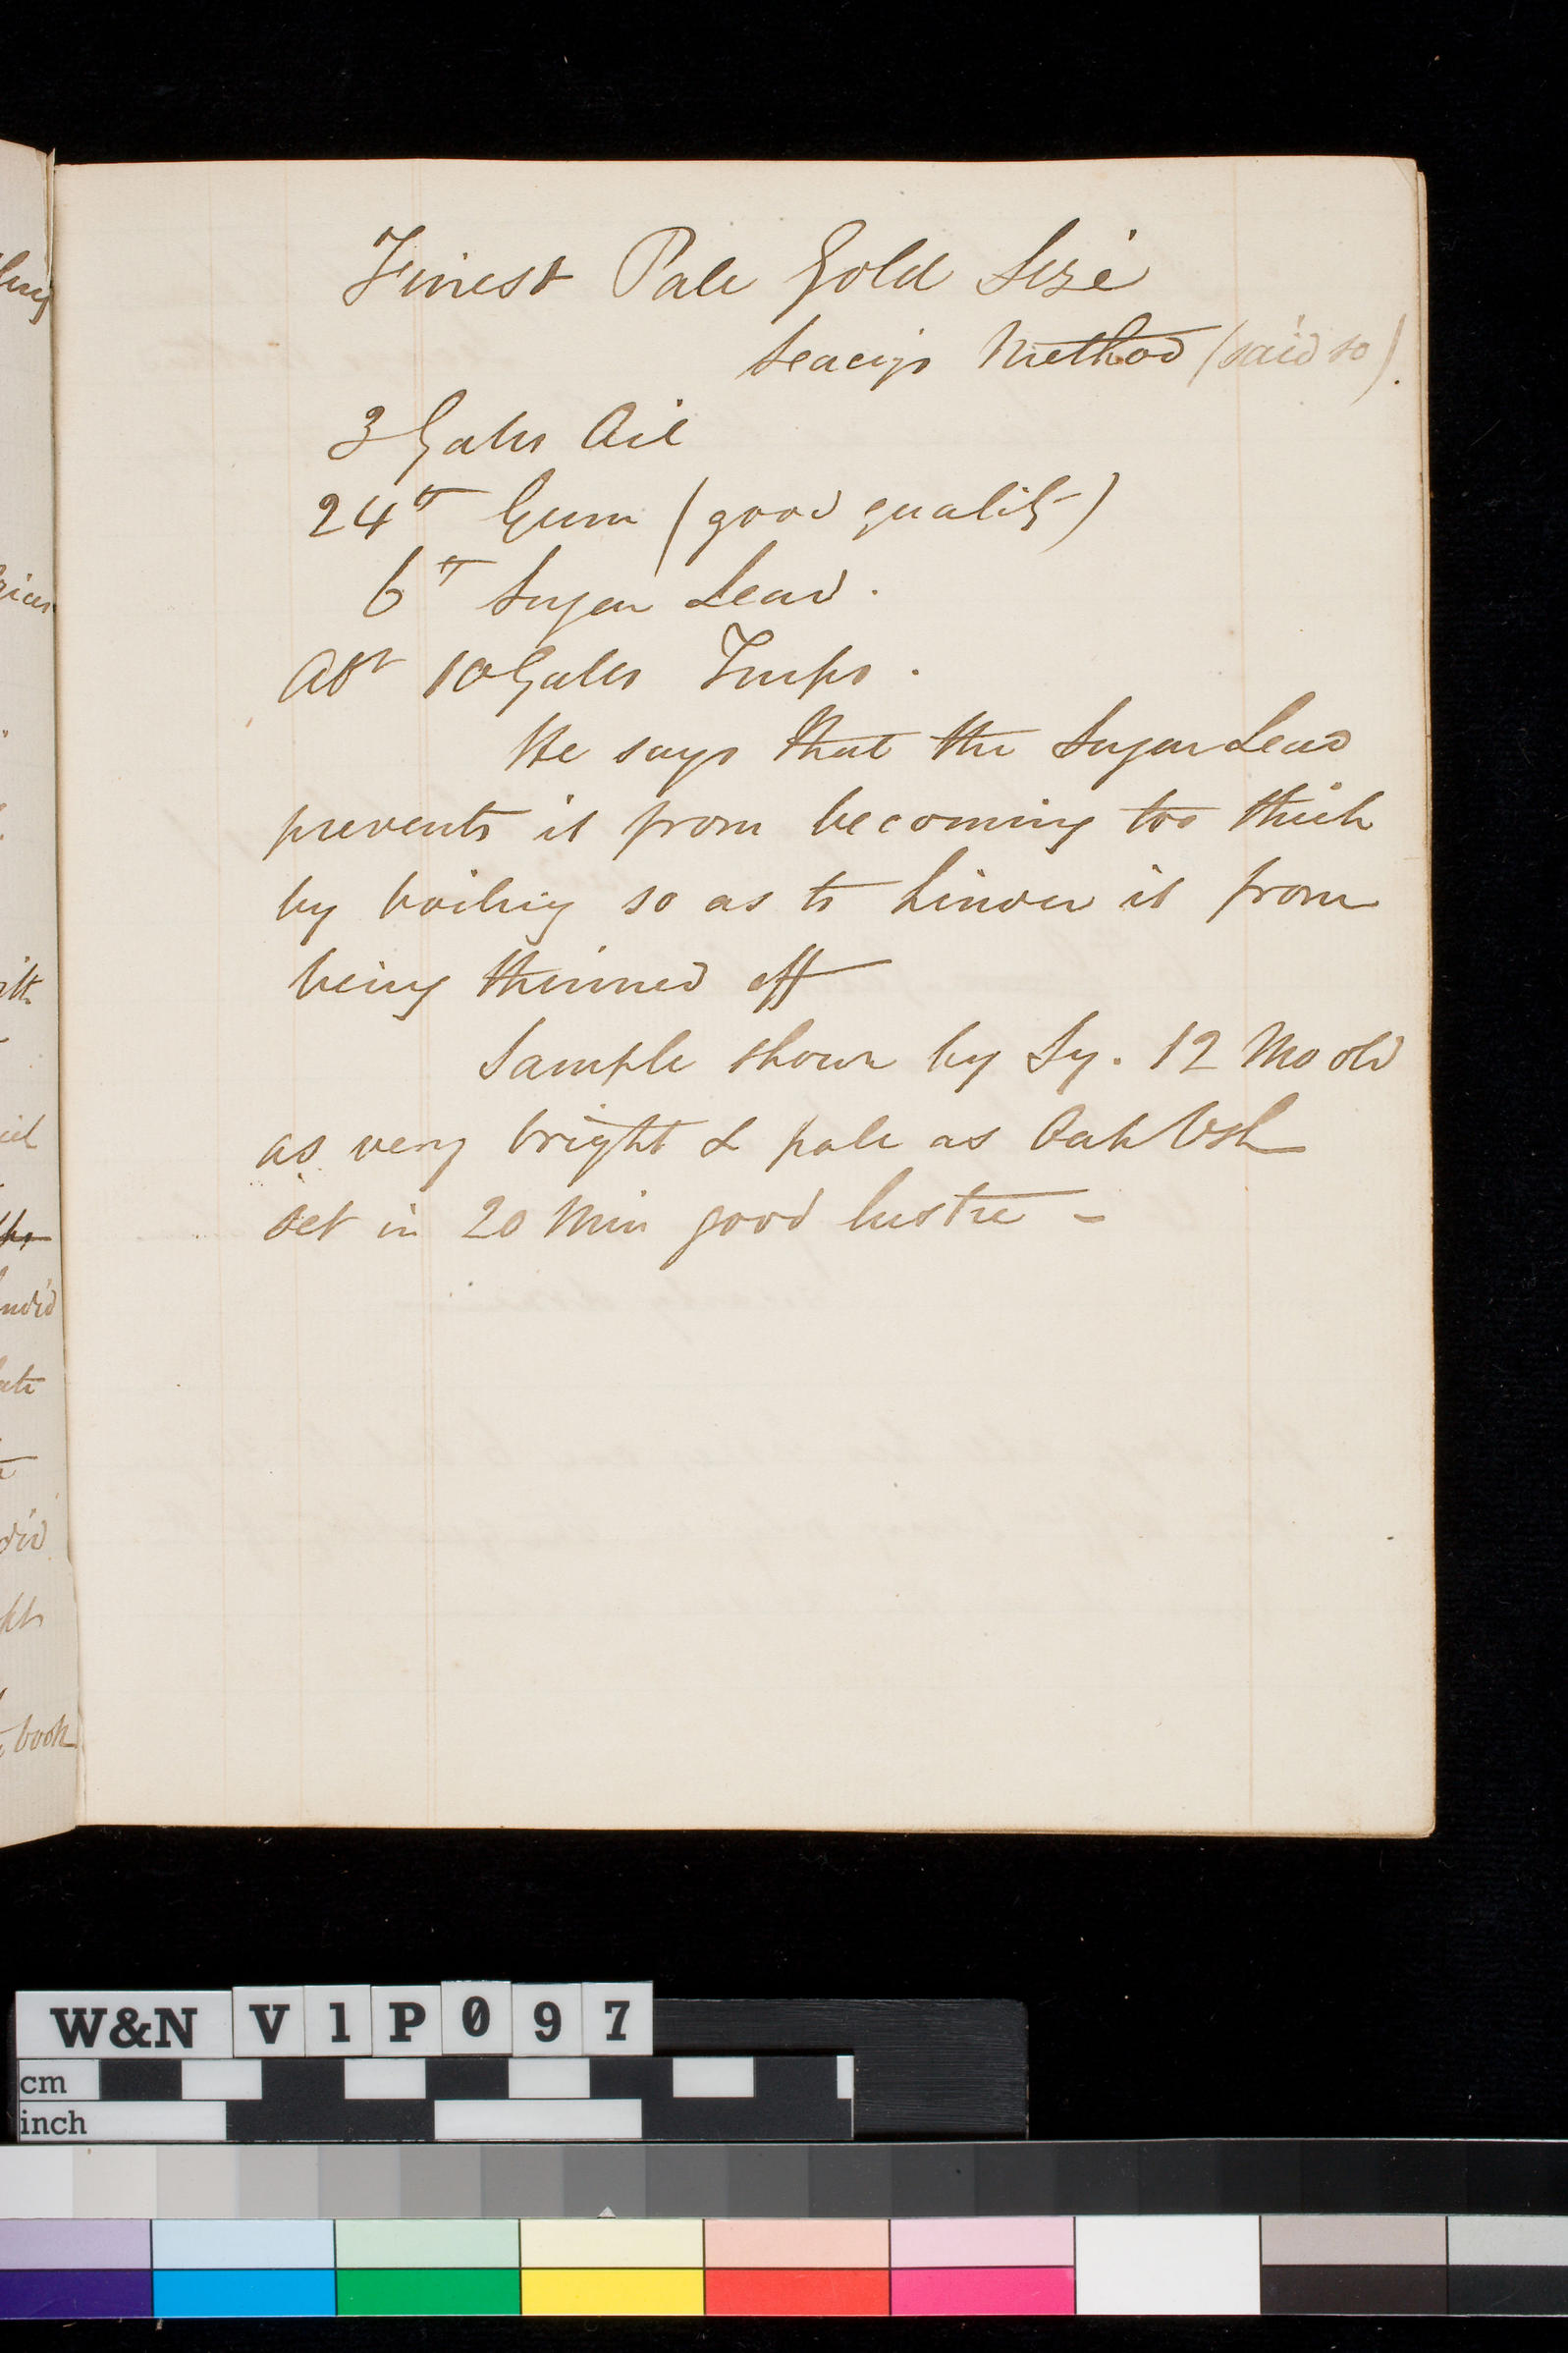 Finest Pale Gold Size
Seacy's Method (said so).
3 Galls Oil
24 lb Gum (good quality)
6 lb Sugar Lead.
Abt 10 Galls Turps.
He says that the Sugar Lead
prevents it from becoming too thick
by boiling so as to hinder it from
being thinned off
Sample shown by Sy. 12 Mo old
as very bright & pale as Oak Vsh
set in 20 Min good lustre -
ith
book
W&N V1P097
cm
inch